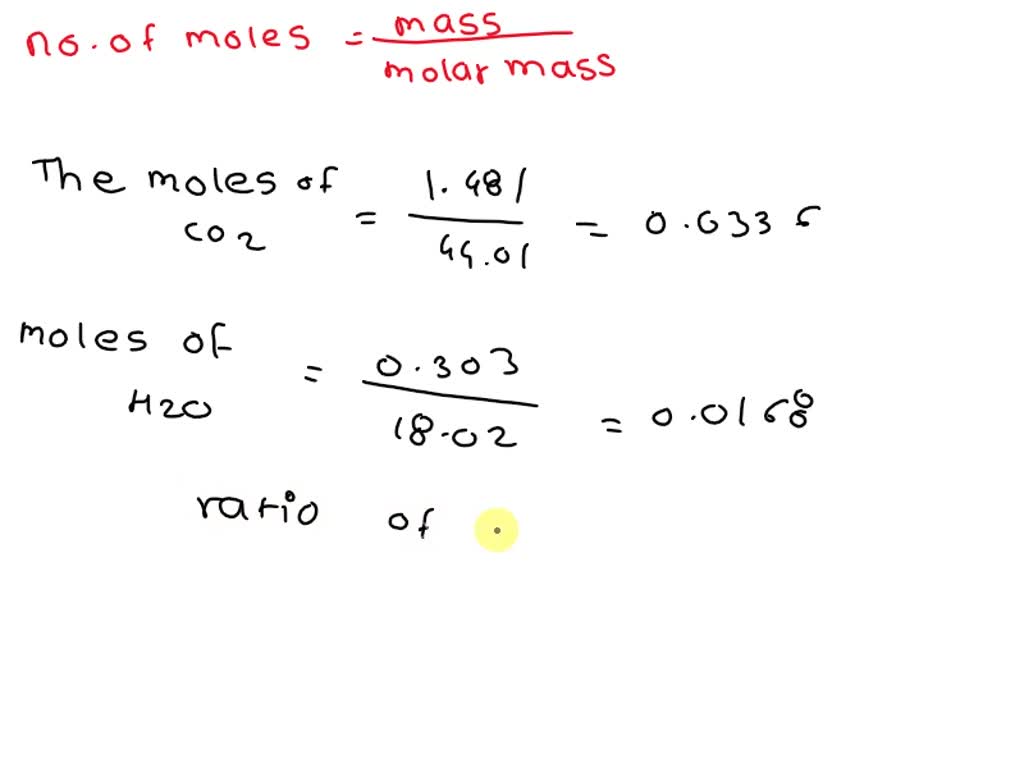 no. of moles = mass / molar mass
The moles of CO2 = 1.481 / 44.01 = 0.0336
moles of H2O = 0.303 / 18.02 = 0.0168
ratio of